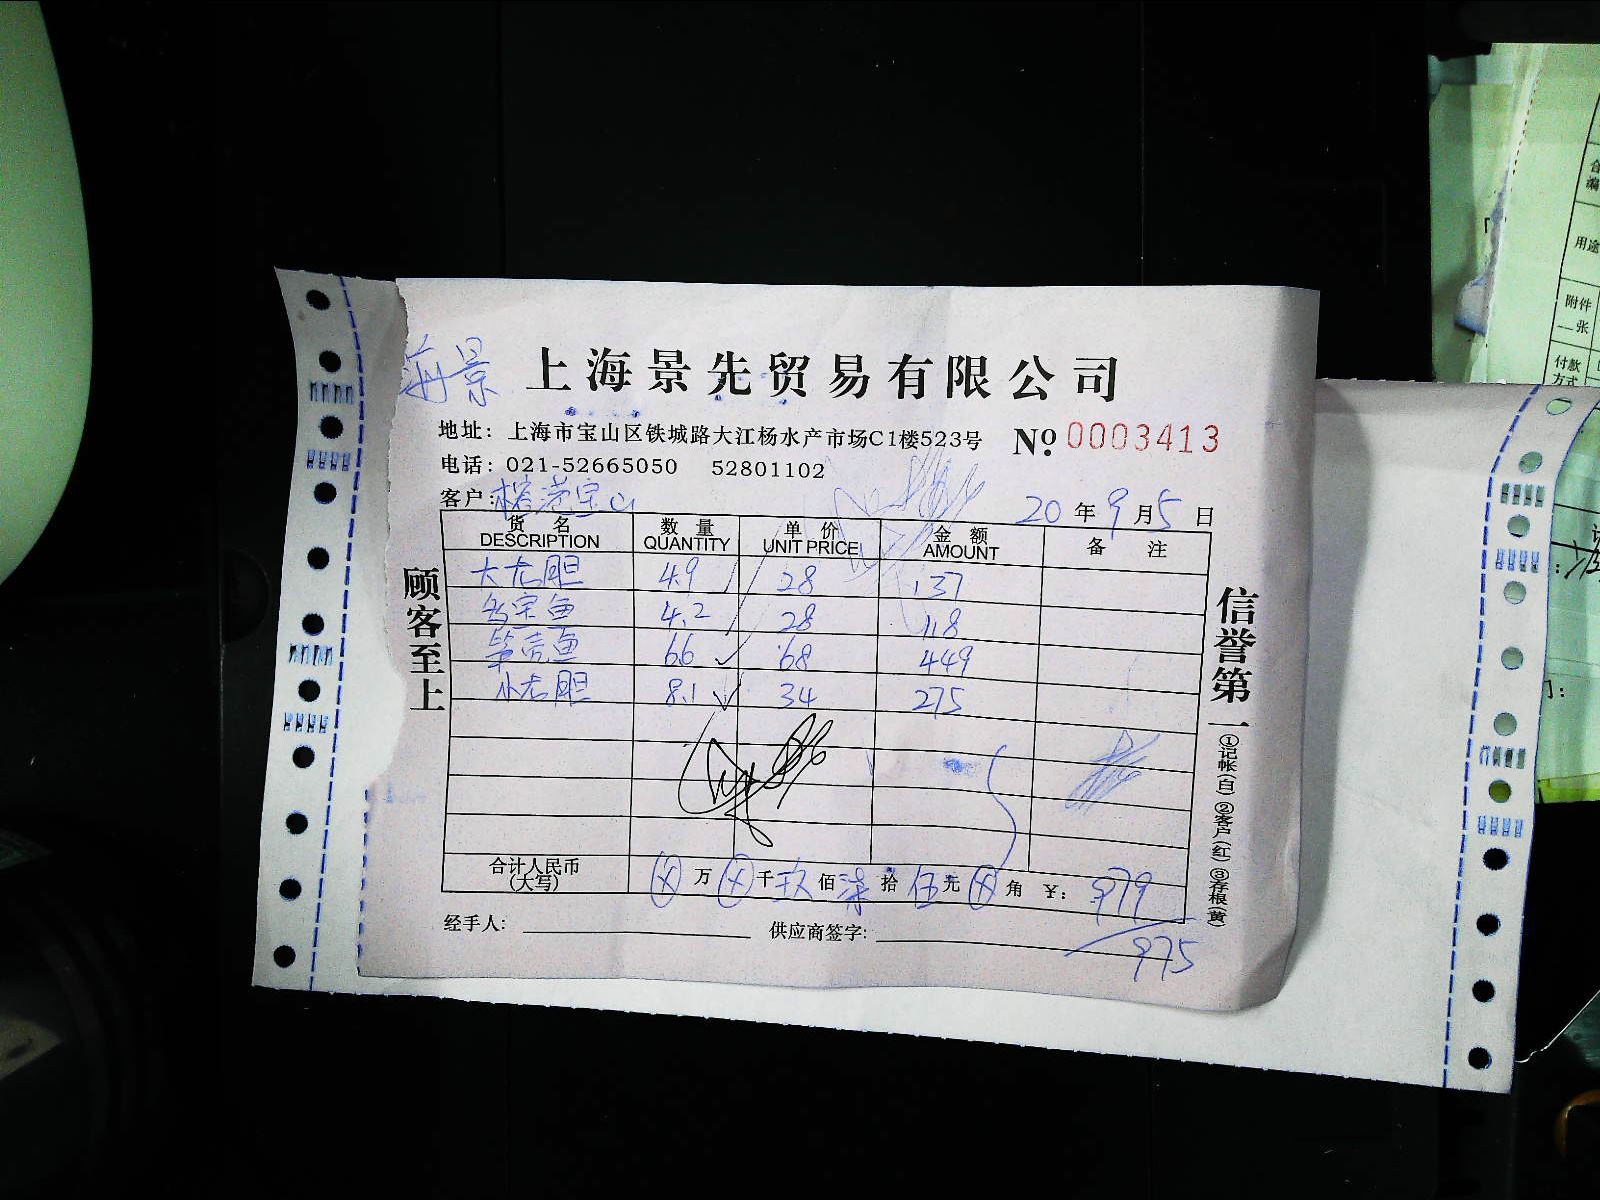 海景
上海景先贸易有限公司
地址：上海市宝山区铁城路大江杨水产市场C1楼523号 No. 0003413
电话：021-52665050 52801102
客户：榕港宝山 20年9月5日
货名 数量 单价 金额 备注
DESCRIPTION QUANTITY UNIT PRICE AMOUNT
大龙胆 4.9 28 137
4.2 28 118
笋壳鱼 6.6 68 449
小龙胆 8.1 34 275
合计人民币 ⊗万⊗千玖佰柒拾伍元⊗角 ¥：979
(大写)
经手人： 供应商签字： 975
顾客至上
信誉第一
①记帐(白)②客户(红)③存根(黄)
合
编
用途
附件
一张
付款
方式